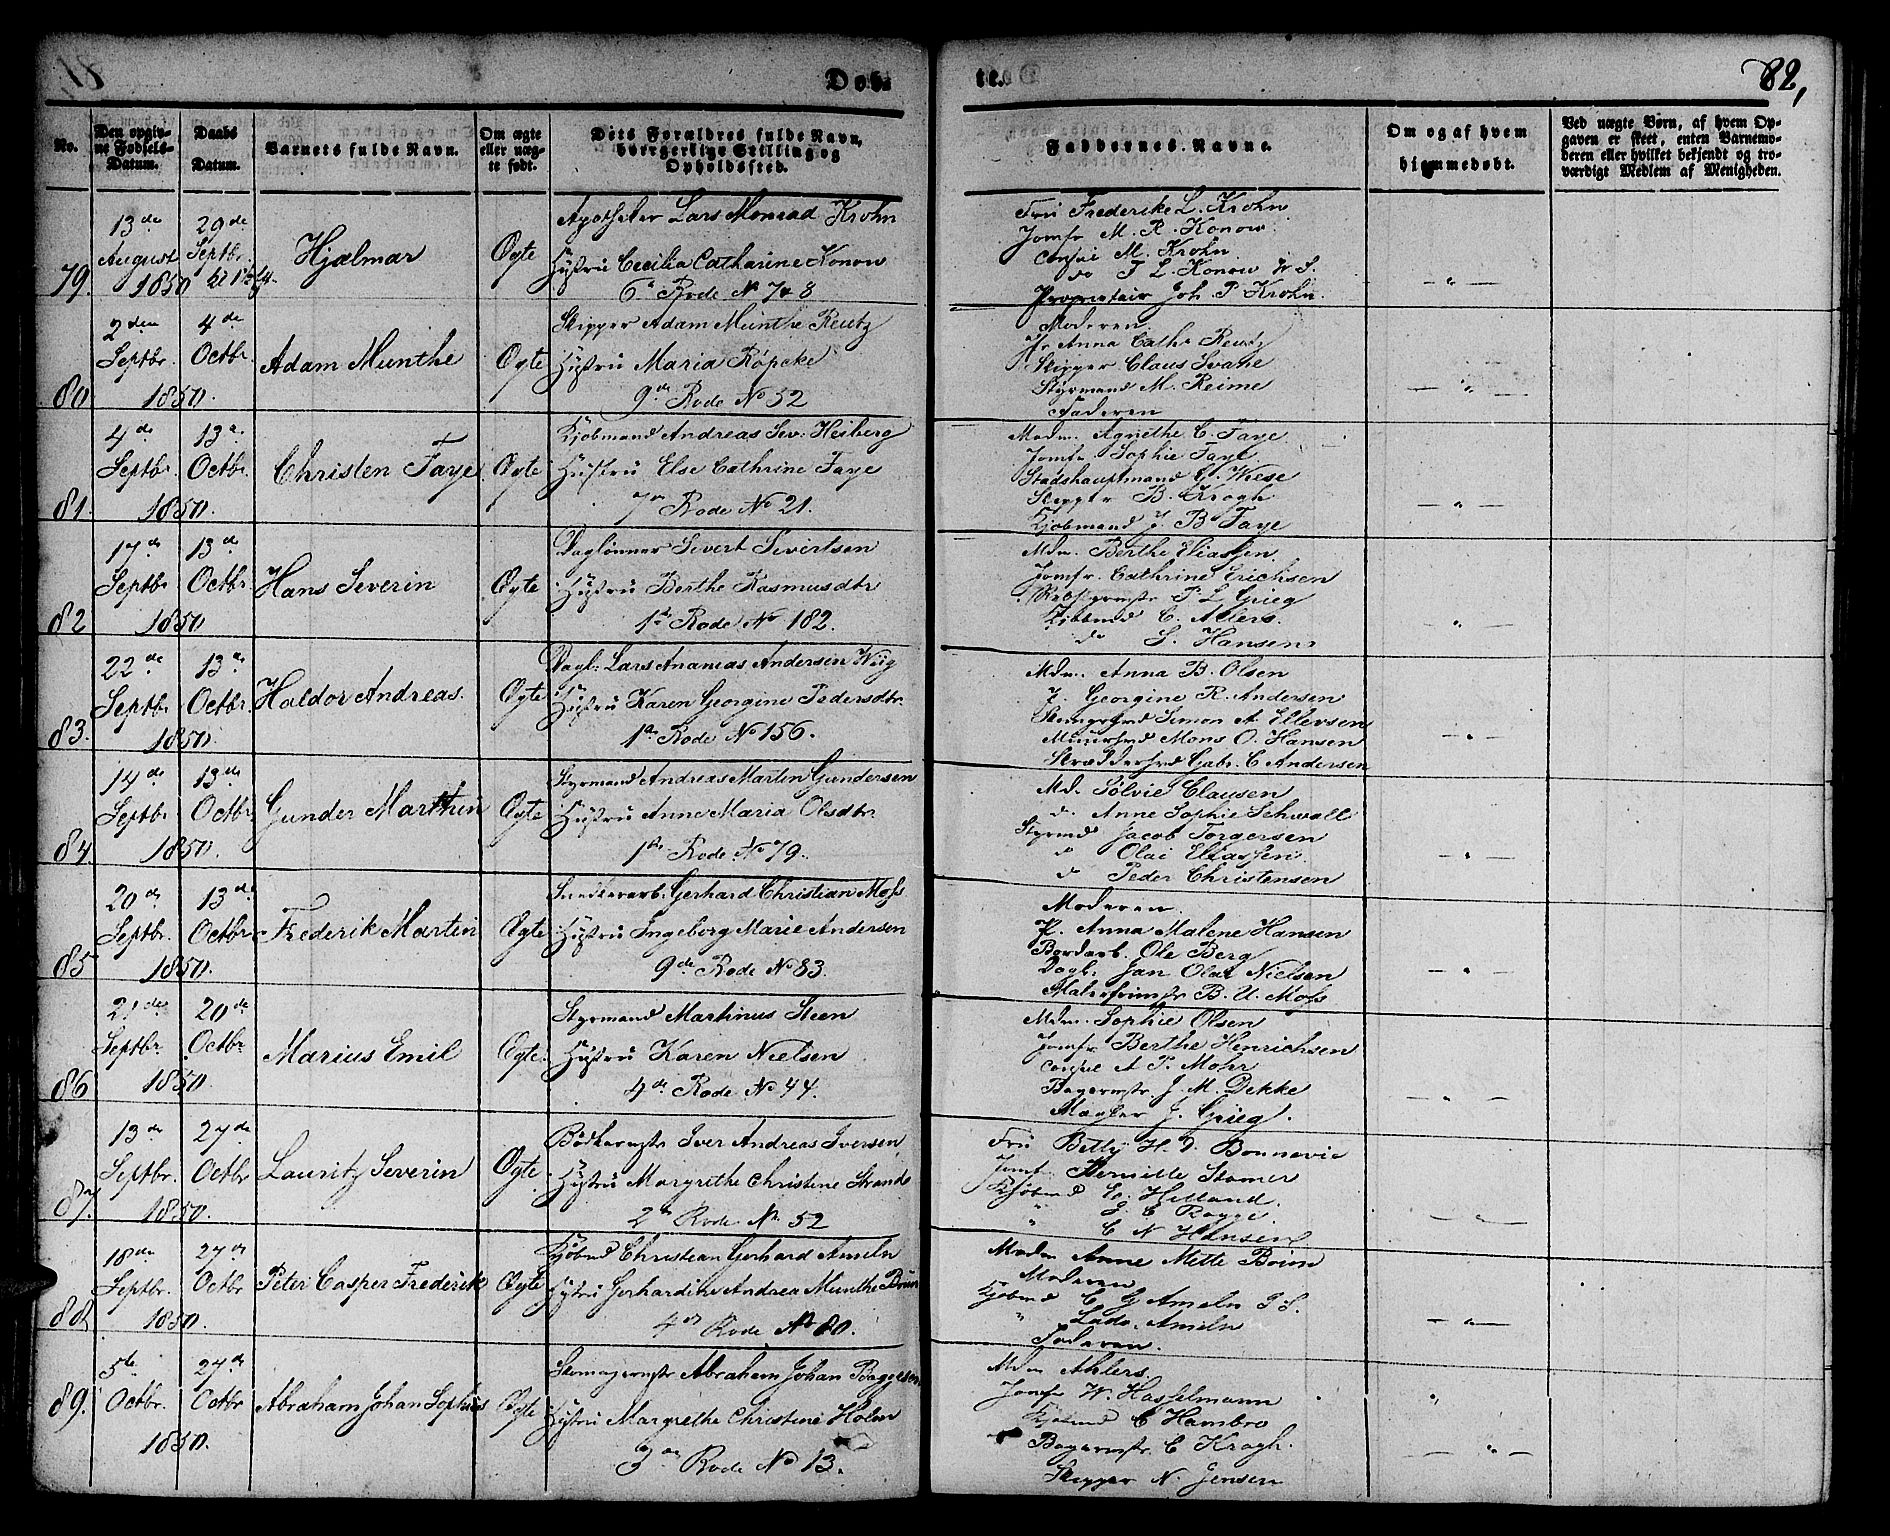 Døb- te. 82,
No.
Den opgiv-
ne Fødsels-
Datum.
Daabs
Datum.
Barnets fulde Navn.
Om ægte
eller uæg-
te født.
Dets Forældres fulde Navn,
borgerlige Stilling og
Opholdssted.
Faddernes Navne.
Om og af hvem
hjemmedøbt.
Ved uægte Børn, af hvem Op-
gaven er skeet, enten Barnemo-
deren eller hvilket bekjendt og tro-
værdigt Medlem af Menigheden.
79.
13de
August
1850
29de
Septbr.
Hjalmar
Ægte
Apotheker Lars Monrad Krohn
Hustru Cecilia Catharine Konow
6te Rode No 7 & 8
Fru Frederikke L. Krohn
Jomfr M. R. Konow
Consul M. Krohn
do F L. Konow W. S.
Proprietair Joh. P. Krohn.
80
2den
Septbr.
1850.
4de
Octbr.
Adam Munthe
Ægte
Skipper Adam Munthe Reutz
Hustru Maria Röpcke
9de Rode No 52
Moderen.
Jfr Anna Cathr Reutz
Skipper Claus Svane
Styrmand M. Reime
Faderen
81.
4de
Septbr
1850.
13de
Octbr.
Christen Faye
Ægte
Kjøbmand Andreas Sev: Heiberg
Hustru Else Cathrine Faye
7de Rode No 21.
Madm. Agnethe C. Faye
Jomfr Sophie Faye
Stadshauptmand G. Wiese
Skipper B. Krogh
Kjøbmand J. B Faye
82
17de
Septbr
1850
13de
Octbr
Hans Severin
Ægte
Daglønner Sivert Sivertsen
Hustru Berthe Rasmusdtr
1ste Rode No 182.
Mdm. Berthe Eliassen
Jomfr. Cathrine Erichsen
P L Grieg
Kjøbmd C. Ahlers.
do S. Hansen
83.
22de
Septbr
1850.
13de
Octbr.
Haldor Andreas.
Ægte
Dagl: Lars Ananias Andersen Wiig
Hustru Karen Georgine Pedersdtr.
1ste Rode No 156.
Mdm. Anna B. Olsen
J. Georgine R. Andersen
Simon A Ellevsen
Muursvd Mons O. Hansen
Skrædersvd Gabr. C Andersen
84
14de
Septbr
1850.
13de
Octbr.
Gunder Marthin
Ægte
Styrmand Andreas Martin Gundersen
Hustru Anne Maria Olsdtr.
1ste Rode No 79.
Md. Sølvie Clausen
do Anne Sophie Schwall
Styrmd Jacob Torgersen
do Olai Eliassen
do Peder Christensen
85
20de
Septbr.
1850.
13de
Octbr
Frederik Martin
Ægte
Gerhard Christian Moss
Hustru Ingeborg Marie Andersen
9de Rode No 83.
Moderen.
P. Anna Malene Hansen
Bordarb. Ole Berg
Dagl. Jan Olai Nielsen
B. U. Moss
86
21de
Septbr.
1850.
20de
Octbr.
Marius Emil
Ægte.
Styrmand Martinus Steen
Hustru Karen Nielsen
4de Rode No 44.
Mdm. Sophie Olsen
Jomfr Berthe Henrichsen
Consul A P. Mohr
Bagermstr. J. M. Dekke
Mægler J. Grieg.
87.
13de
Septbr.
1850.
27de
Octbr
Lauritz Severin
Ægte
Bødkermstr Iver Andreas Iversen
Hustru Margrethe Christine Strand
2den Rode No. 52
Fru Betty H. D. Bonnevie
Jomf. Pernille Stamer
Kjøbmd E. Helland.
" S C Rogge.
" C N Hansen
88.
18de
Septbr.
1850.
27de
Octbr
Peter Casper Frederik
Ægte
Kjøbmd Christian Gerhard Ameln
Hustru Gerhardine Andrea Munthe Brun
4de Rode No 80.
Madm Anne Mette Brun
Moderen
Kjøbmd C. G Ameln P. S.
" Ludv. Ameln
Faderen.
89.
5te
Octbr.
1850.
27de
Octbr
Abraham Johan Sophus
Ægte
Skomagermstr Abraham Johan Baggesen
Hustru Margrethe Christine Holm
3de Rode No 13.
Mdm Ahlers.
Jomfr W. Hasselmann
Kjøbmd C Hambro
Bagermstr. C Krogh.
Skipper N. Jensen